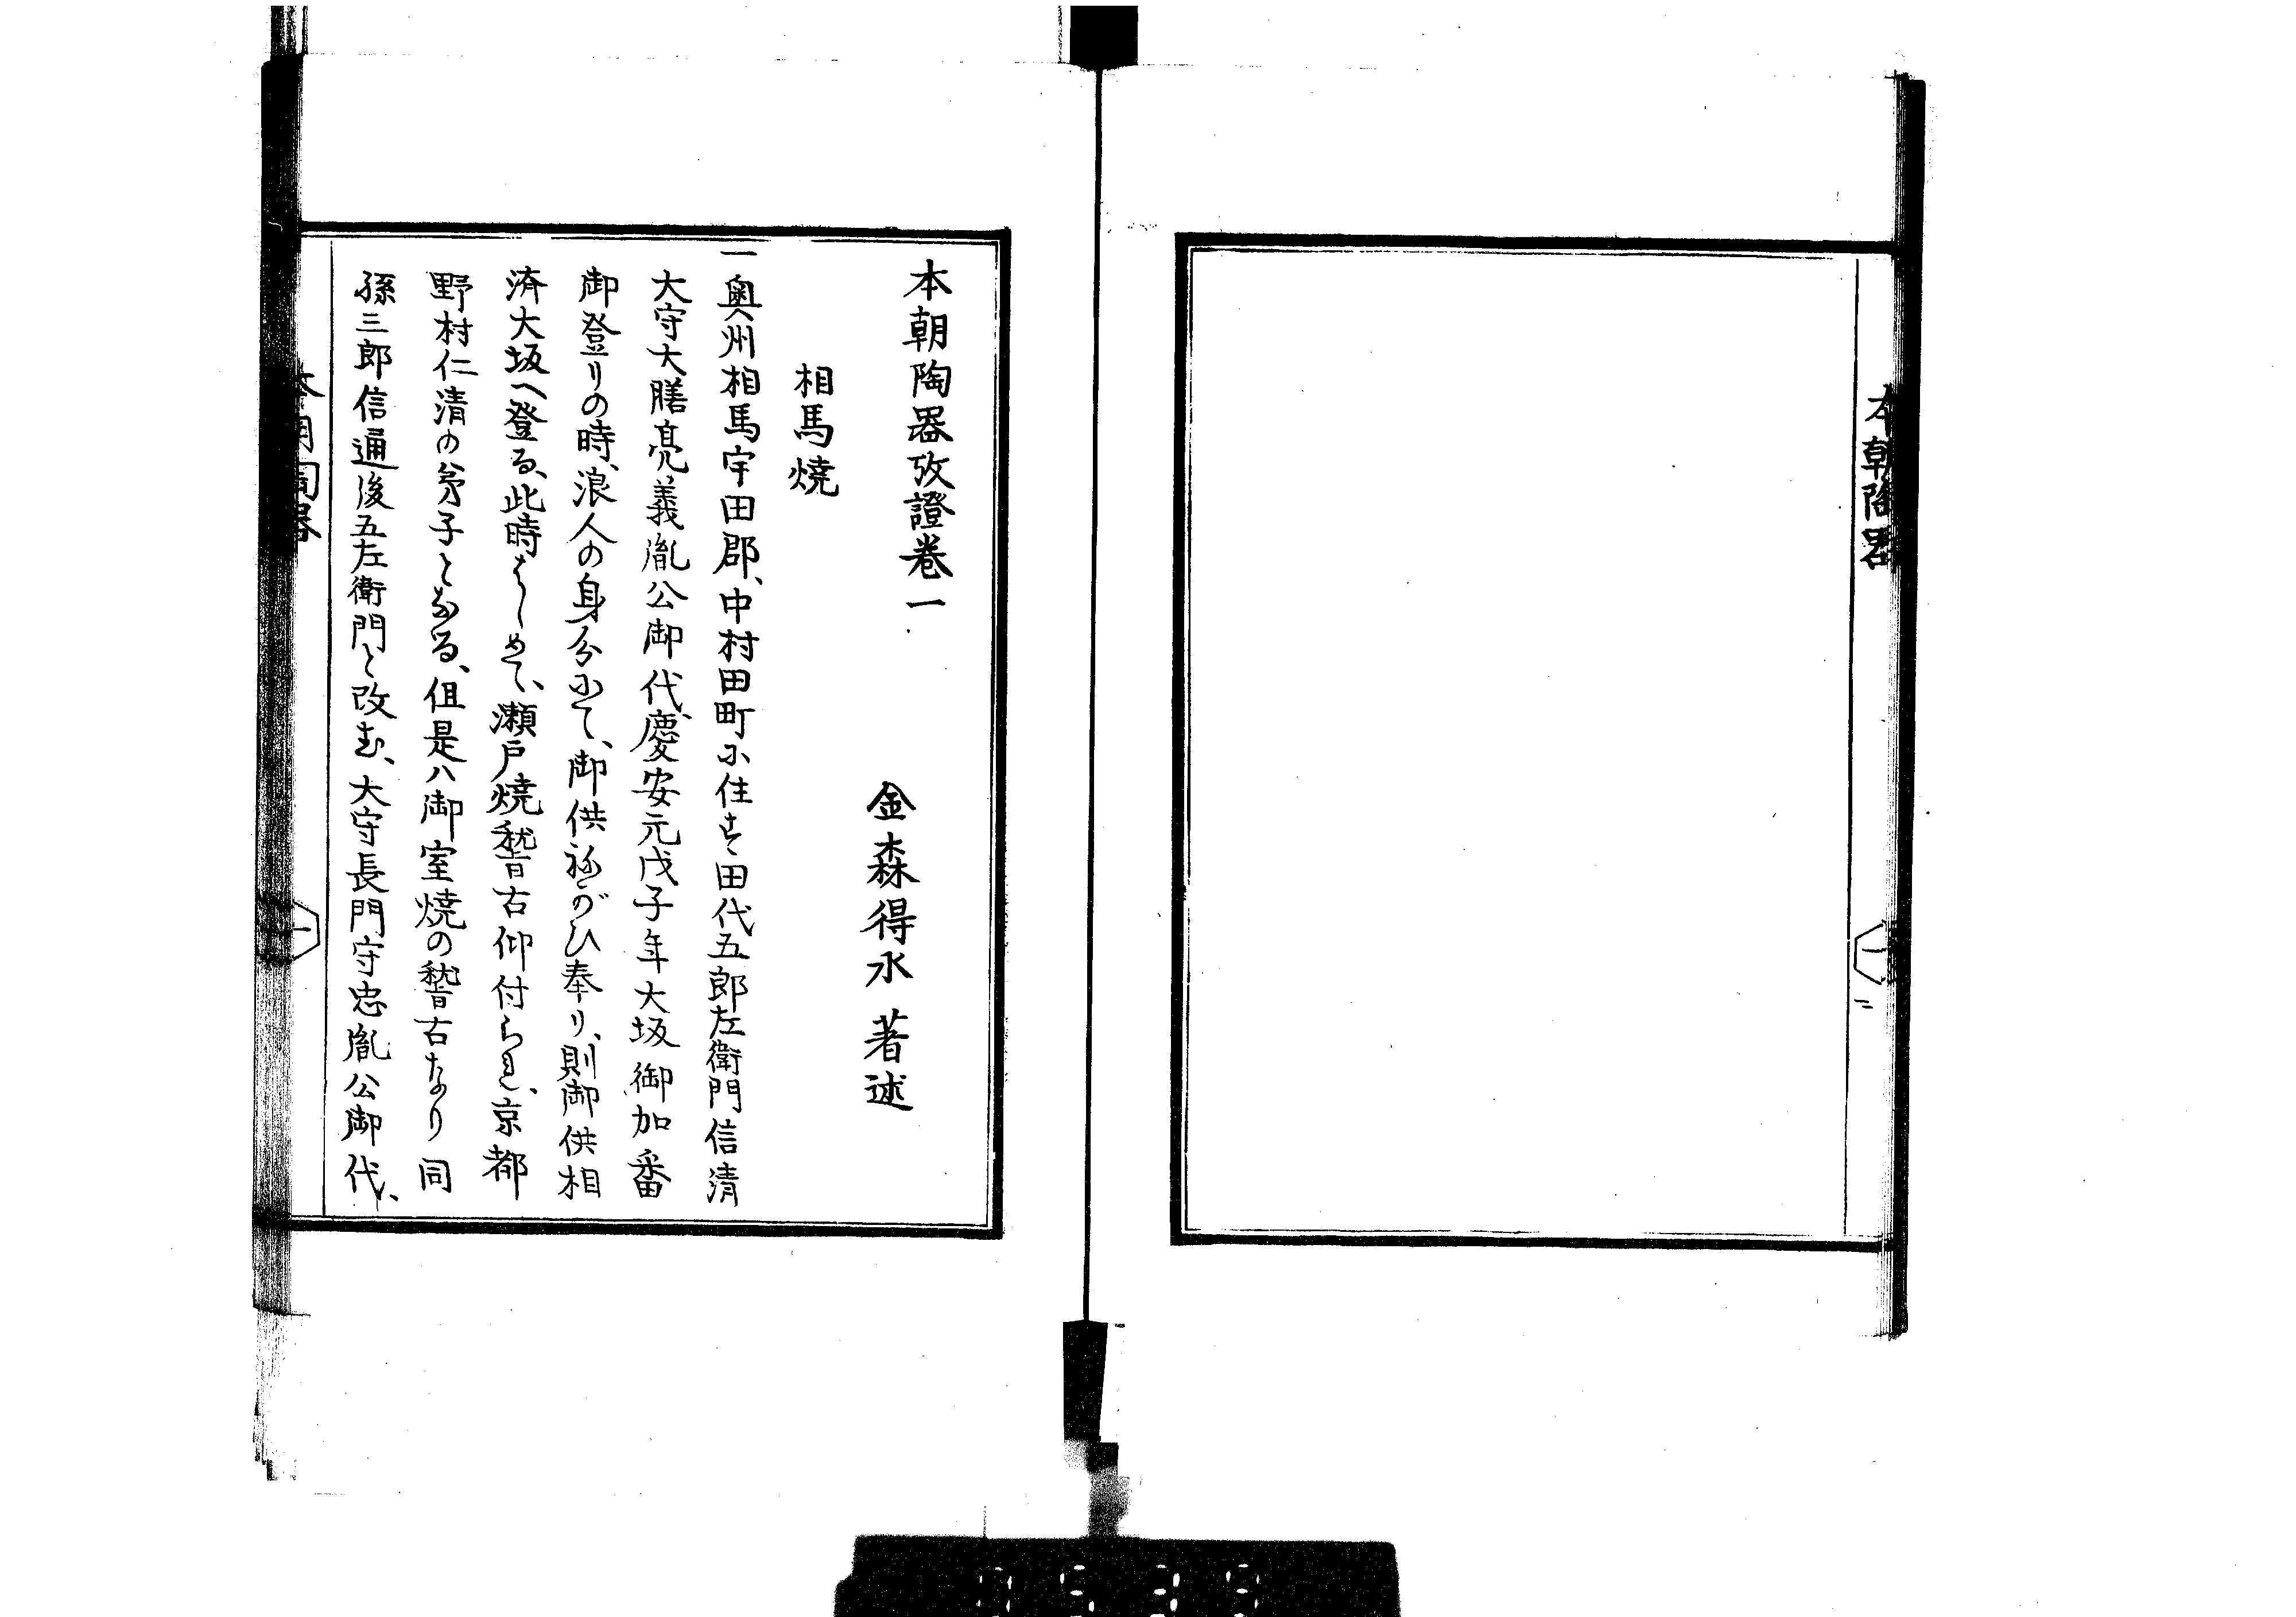 本朝陶器
一
二
本朝陶器攷證卷一
金森得水著述
相馬焼
一奥州相馬宇田郡、中村田町に住す田代五郎左衛門信清
大守大膳亮義胤公御代、慶安元戊子年大坂御加番
御登りの時、浪人の身分にて、御供祢がひ奉り、則御供相
済大坂へ登る、此時はじめて、瀬戸焼稽古仰付られ、京都
野村仁清の弟子となる、但是ハ御室焼の稽古なり同
孫三郎信通後五左衛門と改む、大守長門守忠胤公御代、
本朝陶器
一